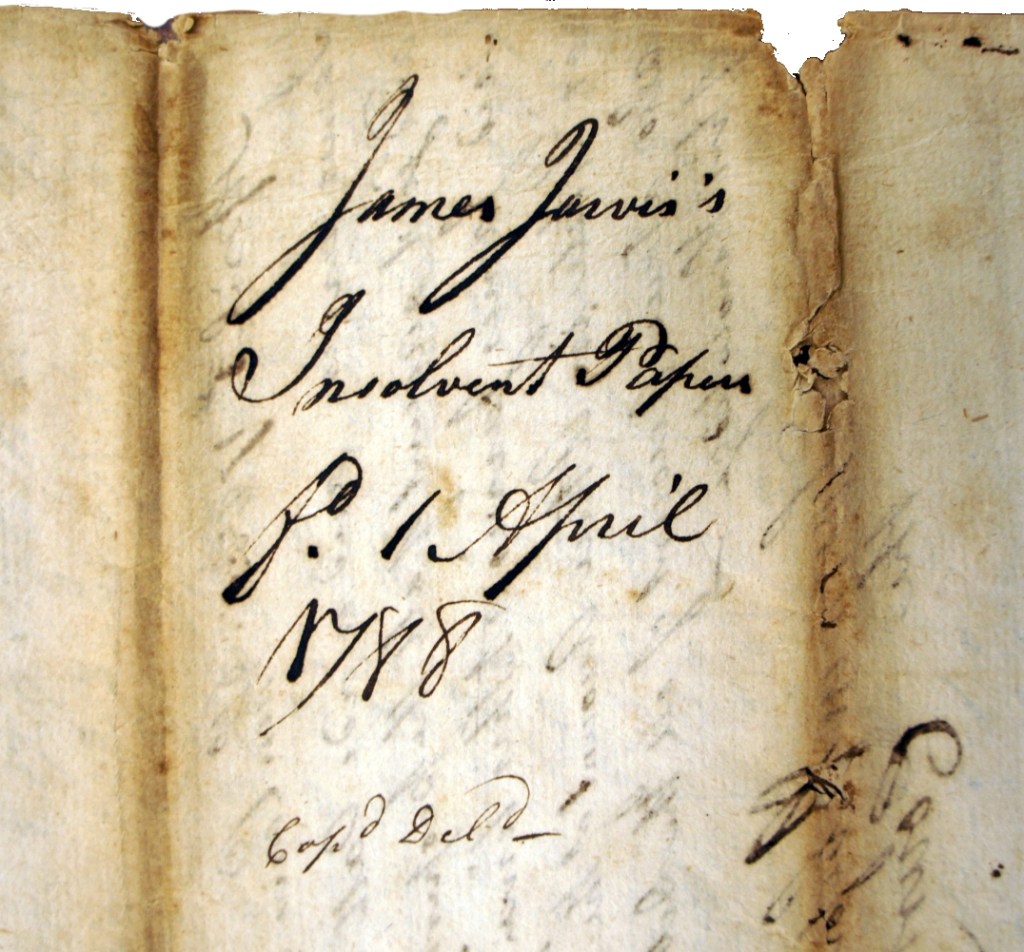 James Jarvis's
Insolvent Papers
fd. 1 April
1788
Cop'd Deld